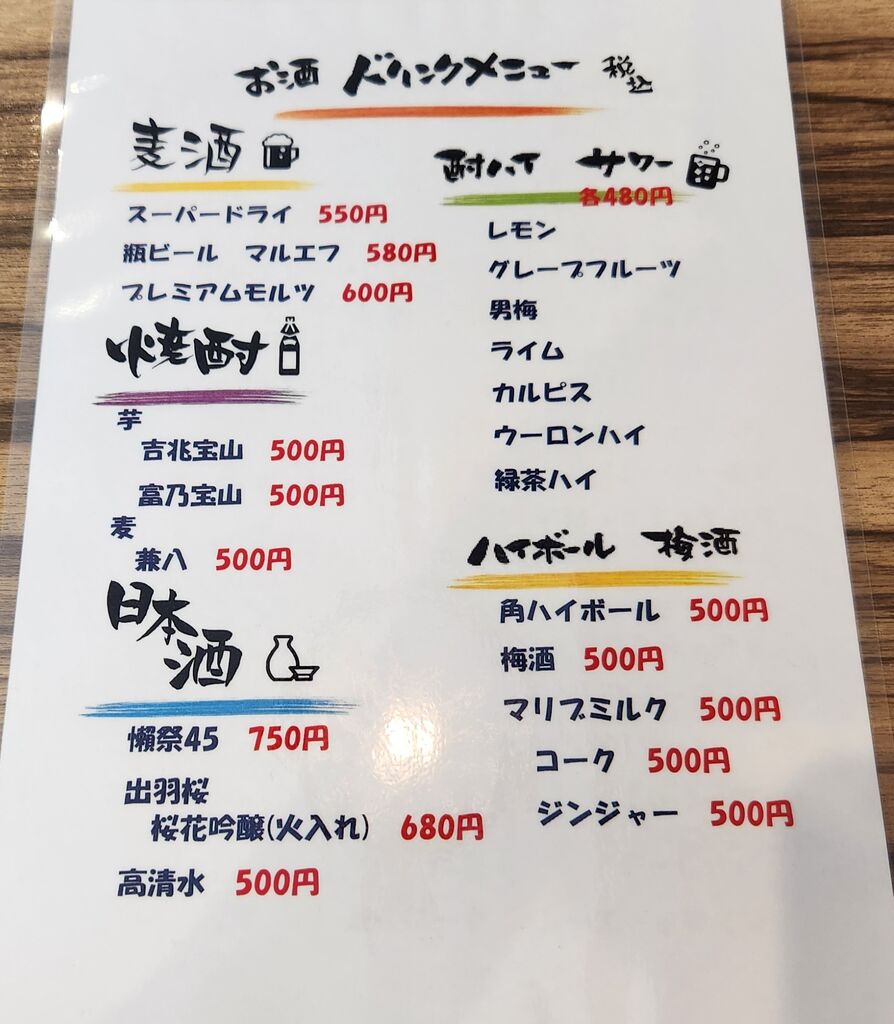 お酒 ドリンクメニュー 税込
麦酒
スーパードライ 550円
瓶ビール マルエフ 580円
プレミアムモルツ 600円
焼酎
芋
吉兆宝山 500円
富乃宝山 500円
麦
兼八 500円
日本酒
懶祭45 750円
出羽桜
桜花吟醸(火入れ) 680円
高清水 500円
酎ハイ サワー
各480円
レモン
グレープフルーツ
男梅
ライム
カルピス
ウーロンハイ
緑茶ハイ
ハイボール 梅酒
角ハイボール 500円
梅酒 500円
マリブミルク 500円
コーク 500円
ジンジャー 500円